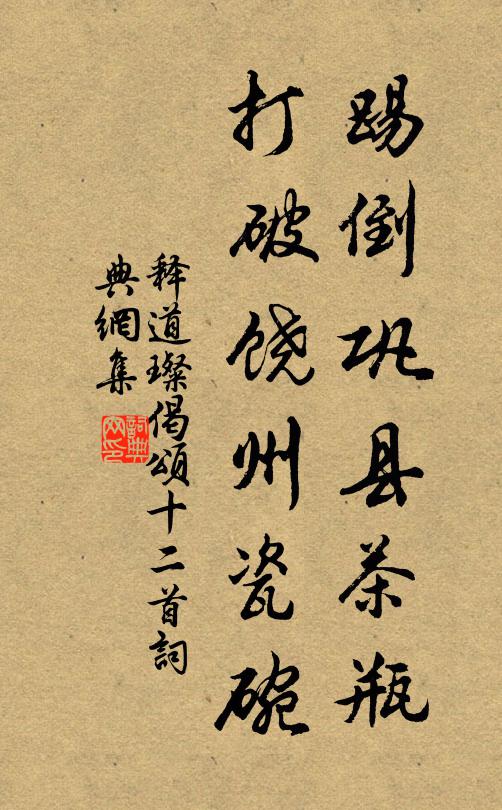 踢倒巩县茶瓶
打破饶州瓷碗
释道璨偈頌十二首詞
典網集
詞典網印